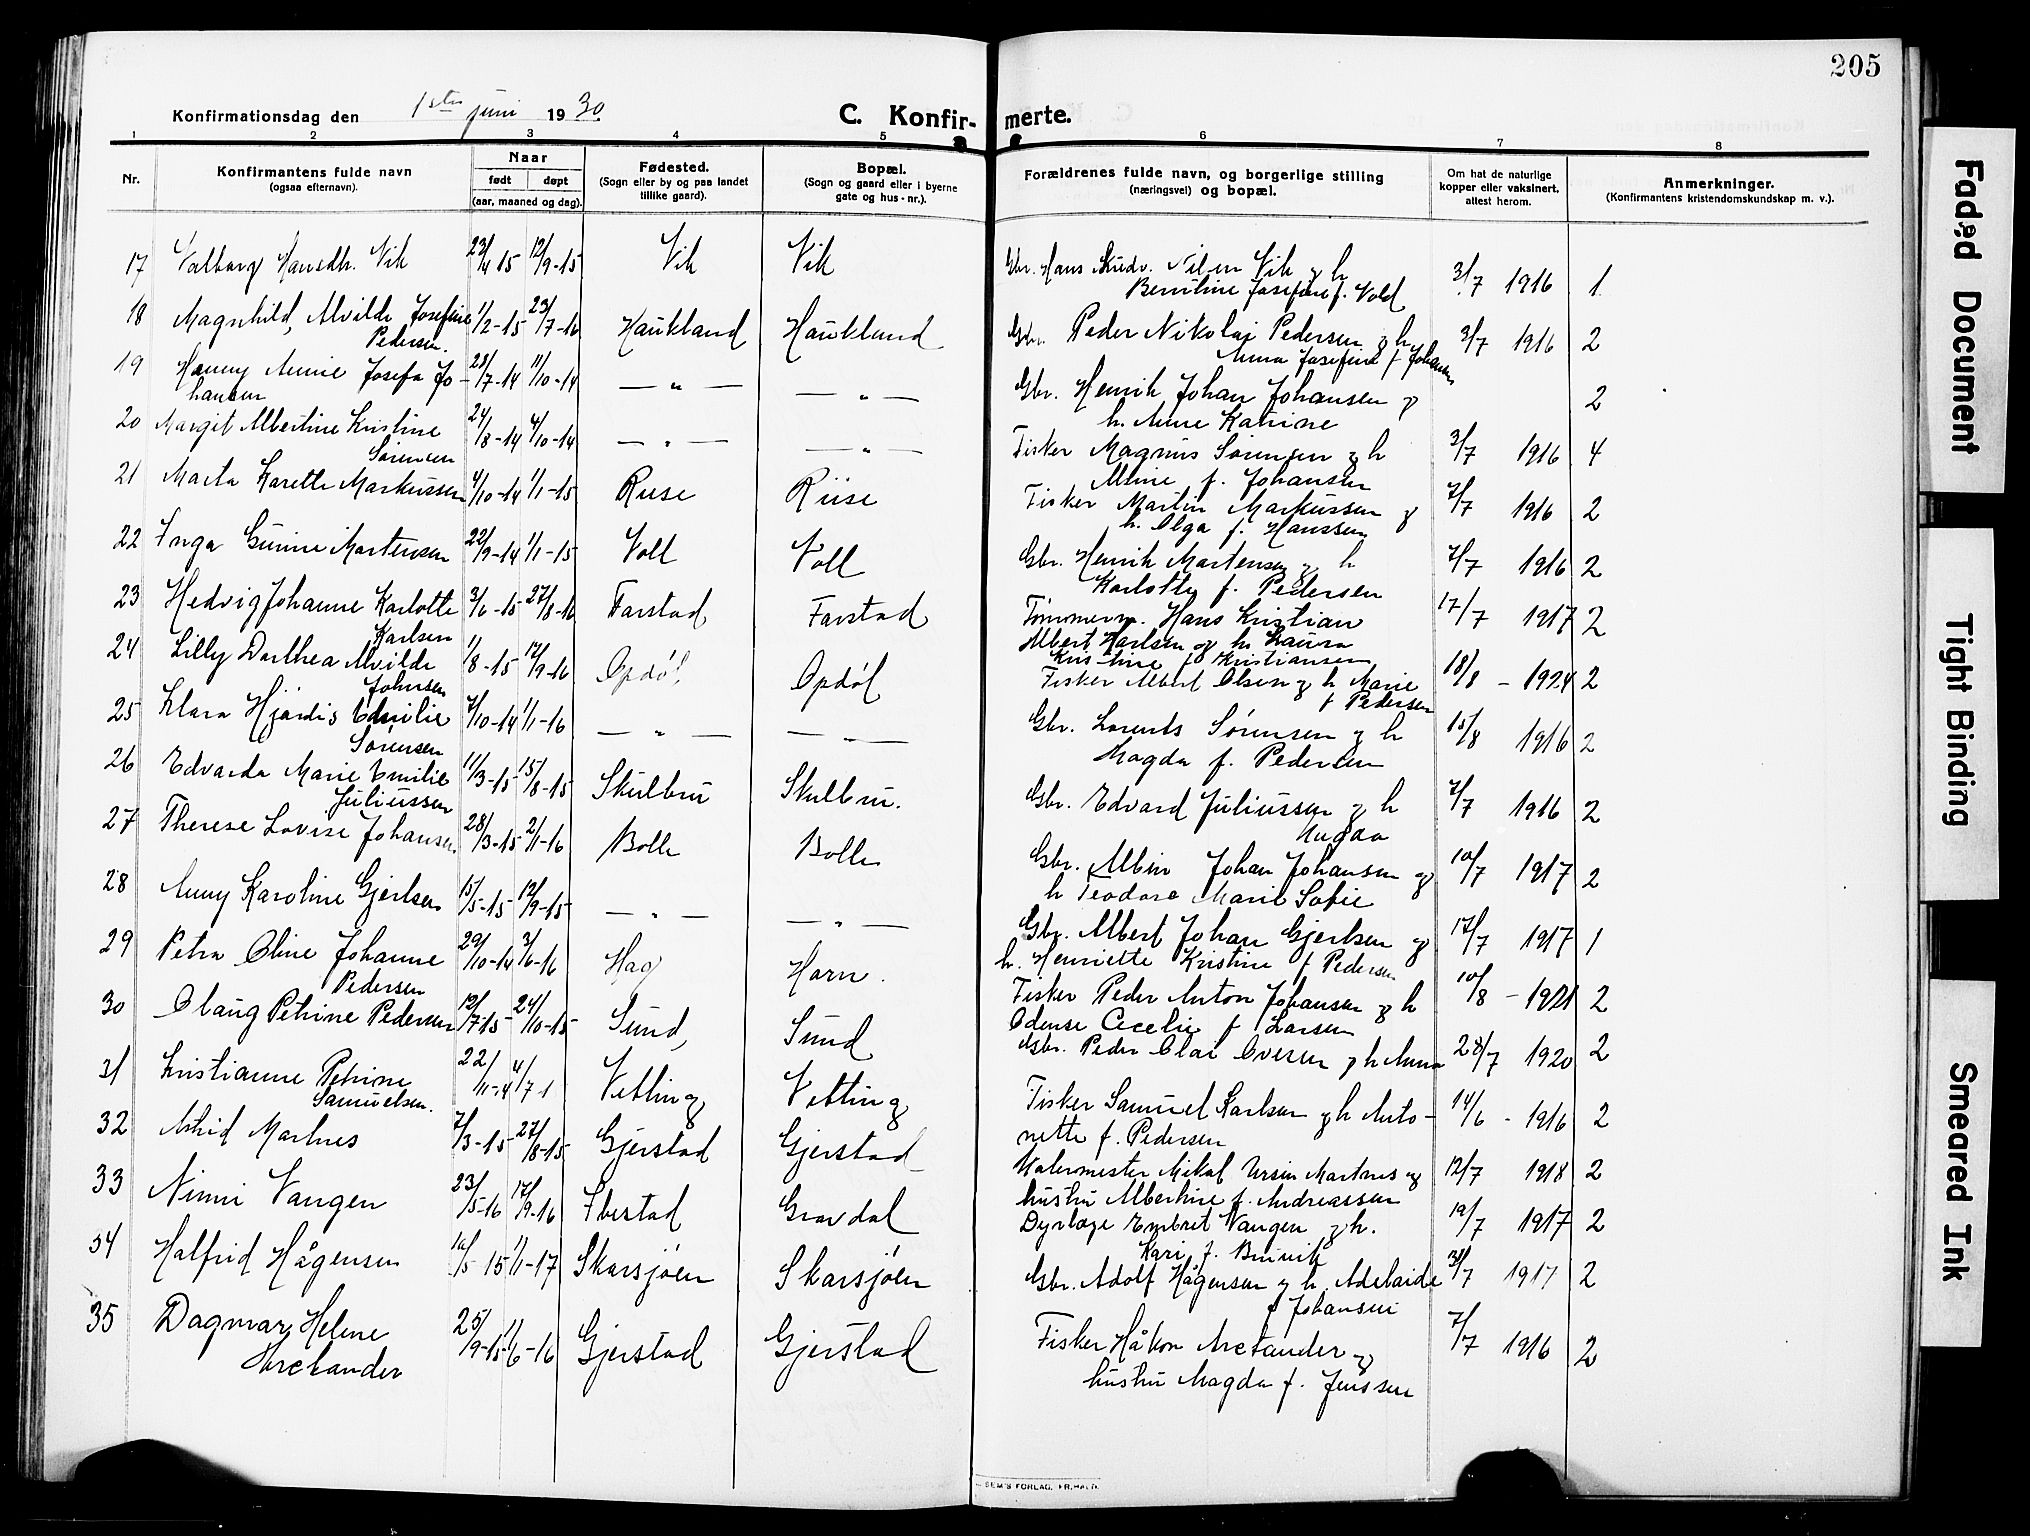 205
Konfirmationsdag den 1ste juni 1930.
C. Konfir- merte.
1 2 3 4 5 6 7 8
Nr.
Konfirmantens fulde navn
(ogsaa efternavn).
Naar
født døpt
(aar, maaned og dag).
Fødested.
(Sogn eller by og paa landet
tillike gaard).
Bopæl.
(Sogn og gaard eller i byerne
gate og hus-nr.).
Forældrenes fulde navn, og borgerlige stilling
(næringsvei) og bopæl.
Om hat de naturlige
kopper eller vaksinert,
attest herom.
Anmerkninger.
(Konfirmantens kristendomskundskap m. v.).
17 Valborg Hansdtr. Vik 23/4 15 12/9-15 Vik Vik Gbr. Hans Nilsen Vik og h 3/7 1916 1
Josefine f. Vold
18 Magnhild, Alvilde Josefine 1/2-15 23/7-16 Haukland Haukland Gbr. Peder Nikolai Pedersen og h 3/7 1916 2
Pedersen. Anna Josefine f Johansen
19 Hanny Annie Josefa Jo- 28/7-14 11/10-14 — " — — " — Gbr. Henrik Johan Johansen og 2
hansen h. Anne Katrine
20 Margit Albertine Kristine 24/8-14 4/10-14 — " — — " — Fisker Magnus Sørensen og h 3/7 1916 4
Sørensen Aline f. Johansen
21 Marta Karette Markussen 4/10-14 1/1-15 Riise Riise Fisker Martin Markussen og 7/7 1916 2
h. Olga f. Hanssen
22 Inga Gunne Martensen 22/9-14 1/1-15 Voll Voll Gbr. Henrik Martensen og h 7/7 1916 2
Karlotte f. Pedersen
23 Hedvig Johanne Karlotte 3/6-15 27/8-16 Farstad Farstad Tømmerm. Hans Kristian 17/7 1917 2
Karlsen Albert Karlsen og h. Laura
Kristine f Kristiansen
24 Lilly Dorthea Alvilde 1/8-15 17/9-16 Opdøl Opdøl Fisker Albert Olsen og h Marie 18/8 - 1924 2
Johnsen f Pedersen
25 Klara Hjørdis Emilie 7/10-14 1/1-16 — " — — " — Gbr. Lorents Sørensen og h 15/8 1916 2
Sørensen Magda f. Pedersen
26 Edvarda Marie Emilie 11/3-15 15/8-15 Skulbru Skulbru. Gbr. Edvard Juliussen og h 7/7 1916 2
Juliussen Hugda
27 Therese Lovise Johansen 28/3-15 2/1-16 Bolle Bolle Gbr. Albin Johan Johansen og 10/7 1917 2
h Teodora Marie Sofie
28 Anny Karoline Gjertsen 15/5-15 12/9-15 — " — — " — Gbr. Albert Johan Gjertsen og 17/7 1917 1
h. Henriette Kristine f Pedersen
29 Petra Oline Johanne 29/10-14 3/6-16 Hag Horn. Fisker Peder Anton Johansen og h 10/8 - 1921 2
Pedersen Odense Cecelie f Larsen
30 Olaug Petrine Pedersen 12/7-15 24/10-15 Sund, Sund Gbr. Peder Olai Ovesen og h Anna 28/7 1920 2
31 Kristianne Petrine 22/11-4 4/7 1 Vetting Vetting Fisker Samuel Karlsen og h Anto- 14/6 - 1916 2
Samuelsen. nette f. Pedersen
32 Astrid Martnes 7/3-15 27/8-15 Gjerstad Gjerstad Malermester Mikal Ursin Martnes og 12/7 1918 2
hustru Albertine f. Andreassen
33 Ninni Vangen 23/5-16 17/9-16 Ibestad Gravdal Dyrlæge Embret Vangen og h. 19/7 1917 2
Kari f. Bruvik
34 Halfrid Hågensen 10/5 15 1/1-17 Skarsjøen Skarsjøen Gbr. Adolf Hågensen og h. Adelaide 31/7 1917 2
f Johansen
35 Dagmar Helene 25/9-15 1/6-16 Gjerstad Gjerstad Fisker Håkon Arctander og 7/7 1916 2
Arctander hustru Magda f. Jenssen
SEM'S FORLAG, FR.HALD.
Faded Document
Tight Binding
Smeared Ink